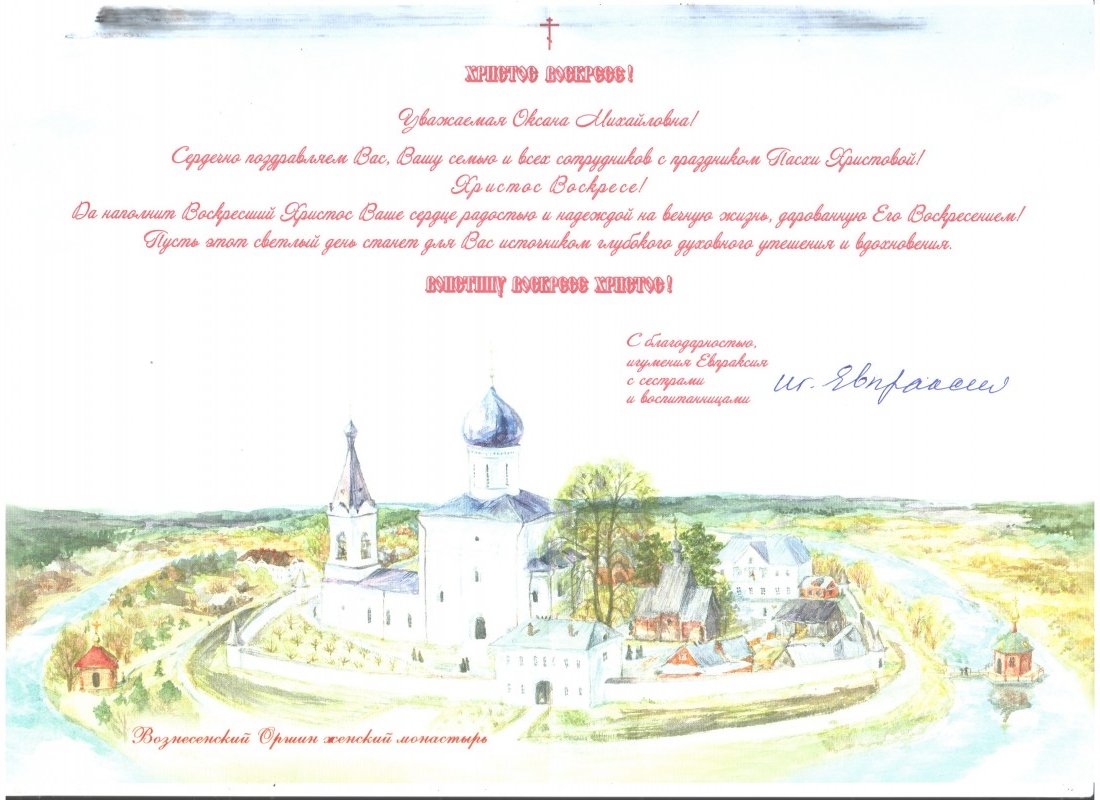 ХРИСТОС ВОСКРЕСЕ!
Уважаемая Оксана Михайловна!
Сердечно поздравляем Вас, Вашу семью и всех сотрудников с праздником Пасхи Христовой!
Христос Воскресе!
Да наполнит Воскресший Христос Ваше сердце радостью и надеждой на вечную жизнь, дарованную Его Воскресением!
Пусть этот светлый день станет для Вас источником глубокого духовного утешения и вдохновения.
ВОИСТИНУ ВОСКРЕСЕ ХРИСТОС!
С благодарностью,
игумения Евпраксия
с сестрами
и воспитанницами
иг. Евпраксия
Вознесенский Оршин женский монастырь